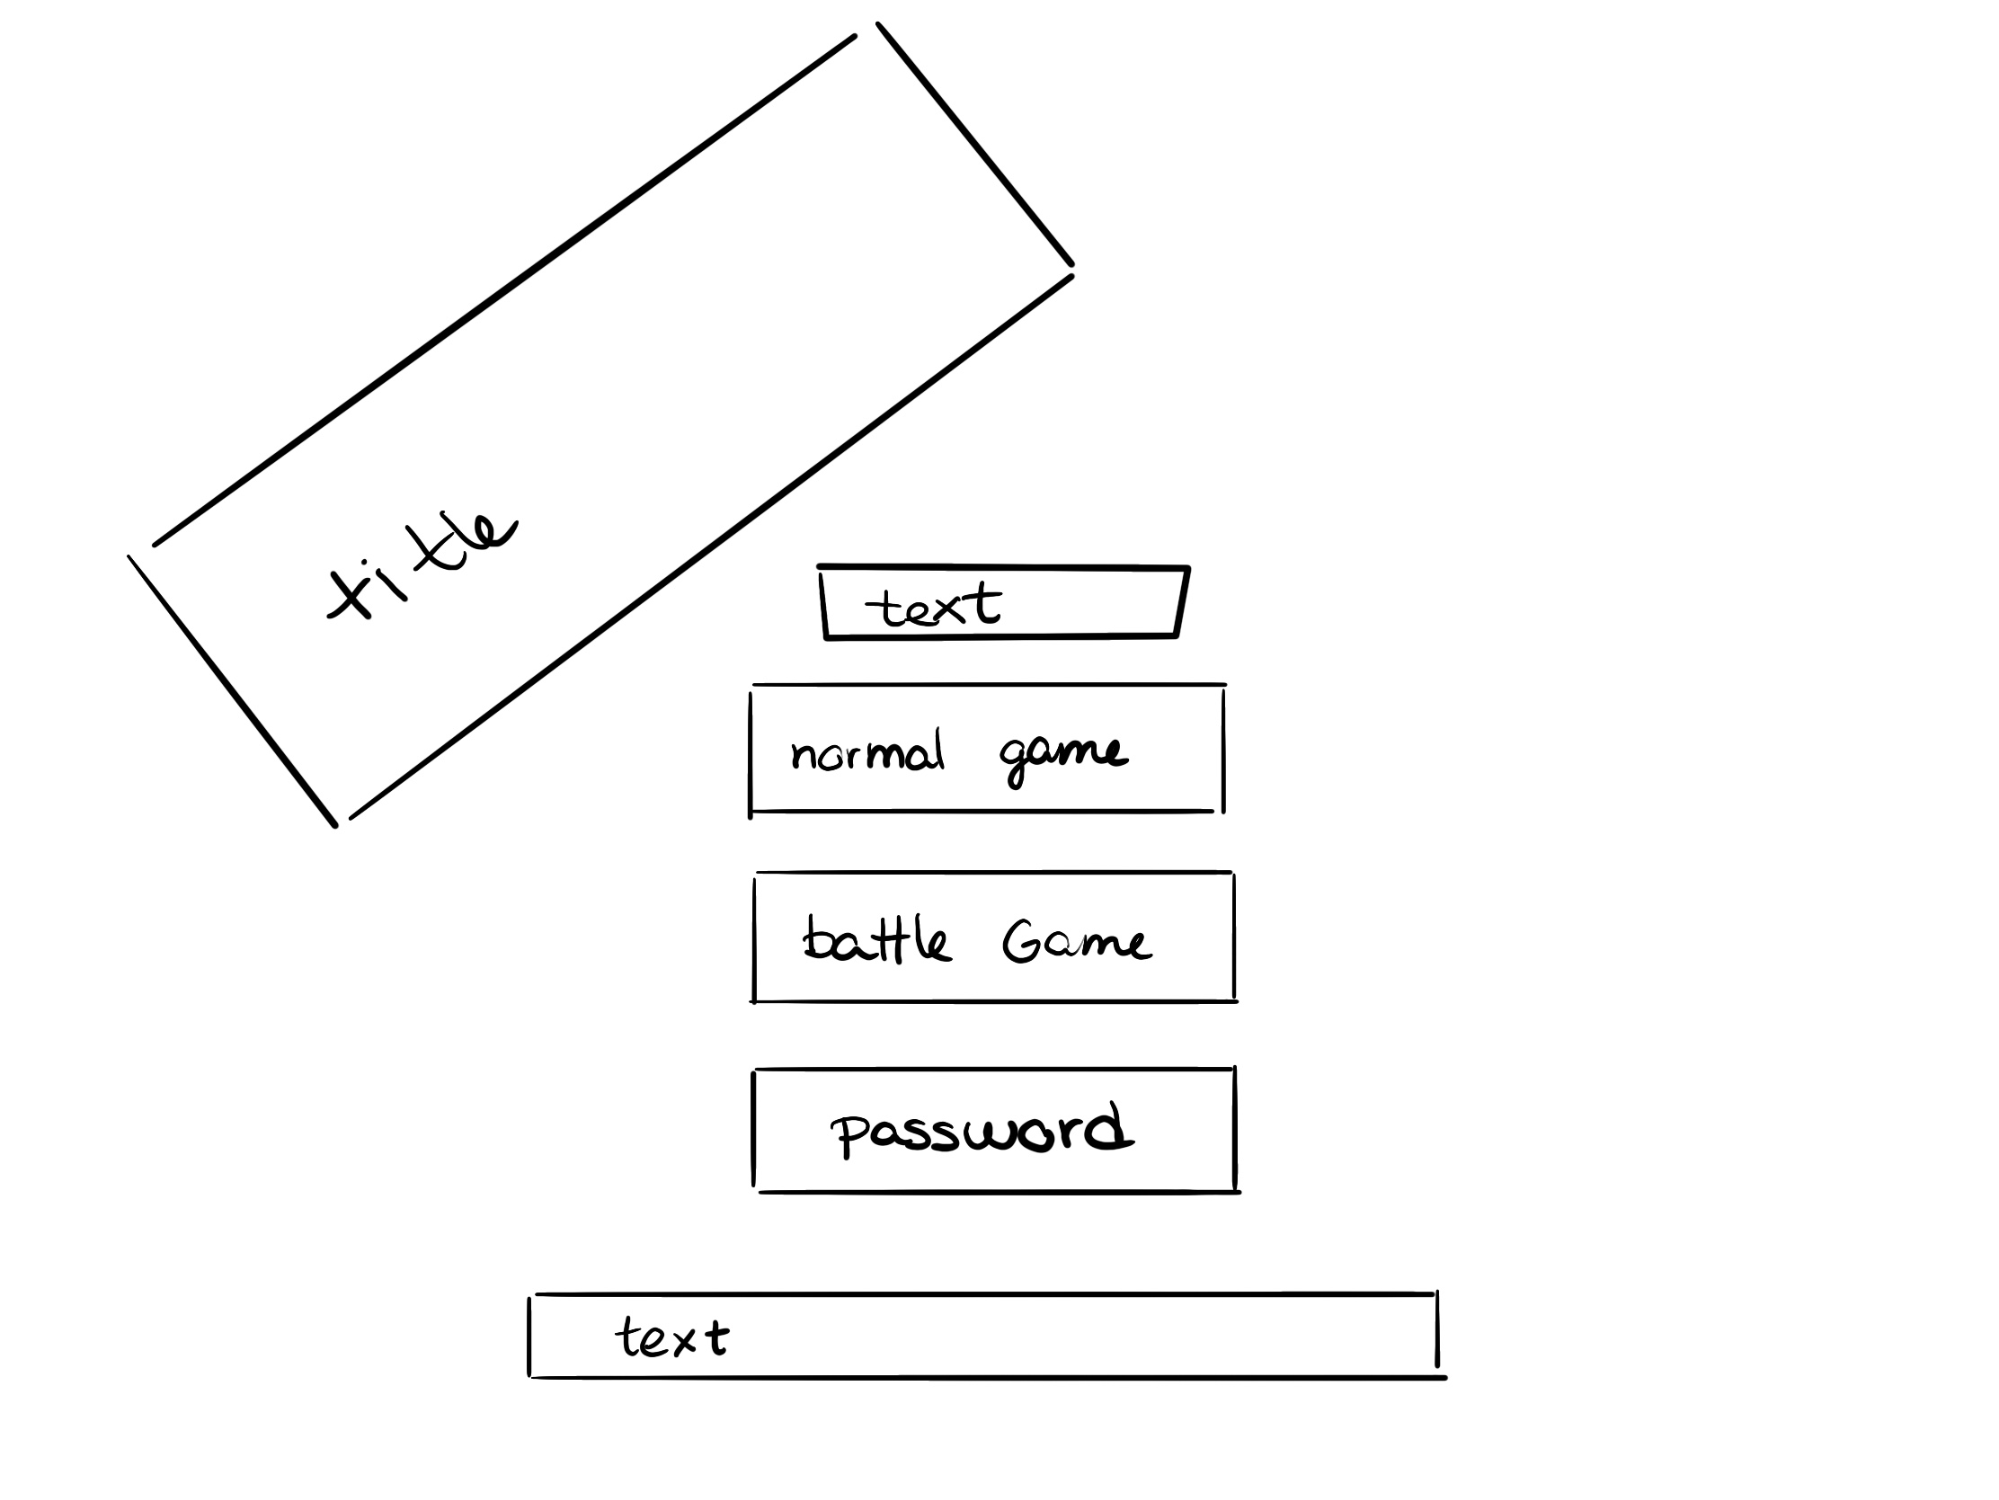 title
text
normal game
battle Game
password
text